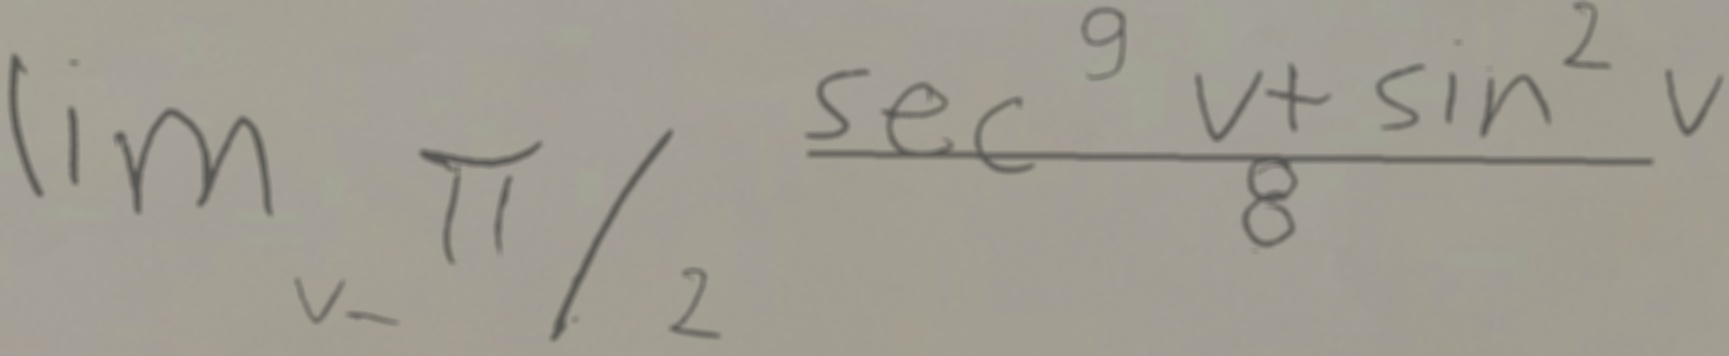 lim v- π/2 sec^9 v + sin^2 v / 8